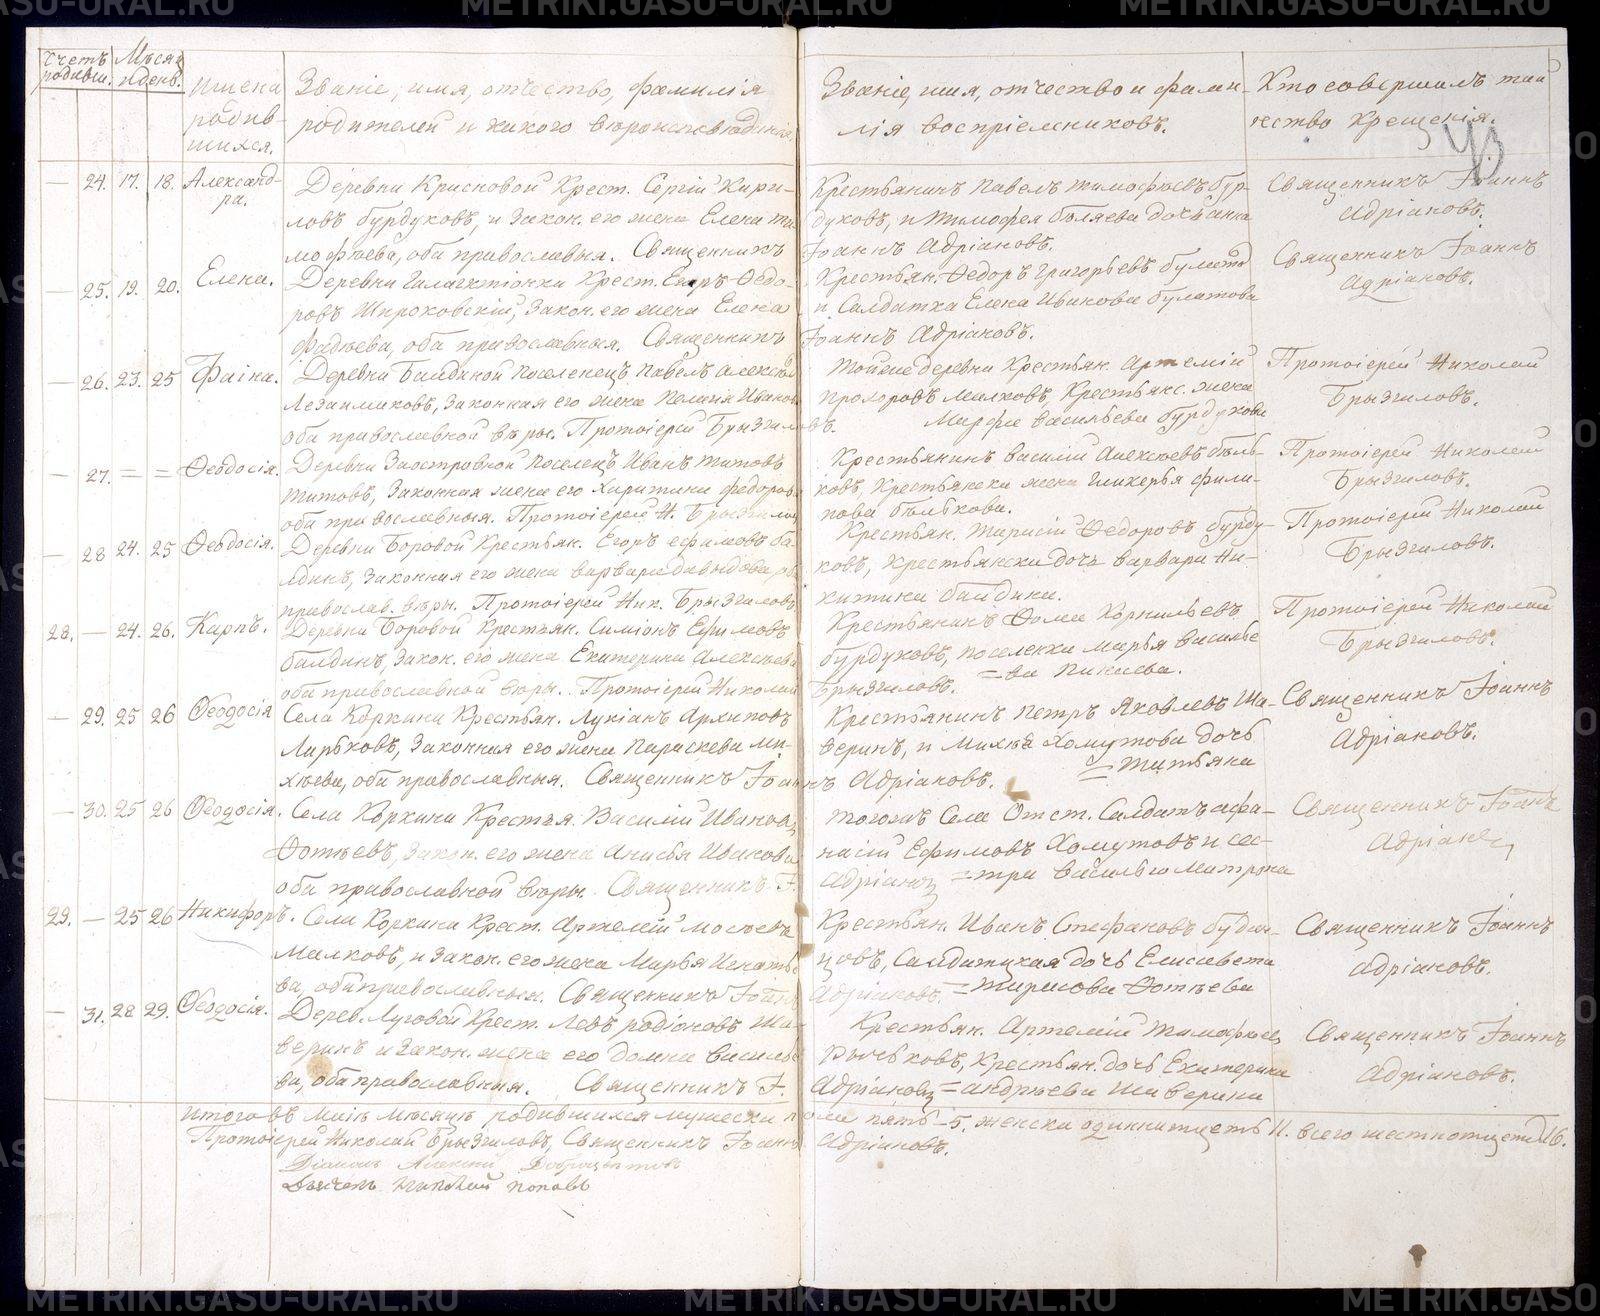 METRIKI.GASU-URAL.RU METRIKI.GASU-URAL.RU
Счетъ родивш. Мѣсяцъ и день.
Имена родившихся.
Званіе, имя, отчество, фамилія
родителей и какого вѣроисповѣданія
Званіе, имя, отчество и фами-
лія воспріемниковъ.
Кто совершалъ таин
ство крещенія.
— 24. 17. 18. Александ-
ра.
Деревни Крест. Сергій Кири-
ловъ Бурдуковъ, и Закон. его жена Елена Ти
мофѣева, оба православныя. Священникъ
Крестьянинъ Павелъ Тимофѣевъ Бур-
дуковъ, и Тимофея Бѣляева дочь Анна
Іоаннъ Адріановъ.
Священникъ Іоаннъ
Адріановъ.
— 25. 19. 20. Елена.
Деревни Крест. Егоръ Ѳедо-
ровъ Широковскій, Закон. его жена Елена
Фадѣева, оба православныя. Священникъ
Крестьян. Ѳедоръ Григорьевъ Булатовъ
и Салдатка Елена Иванова Булатова
Іоаннъ Адріановъ.
Священникъ Іоаннъ
Адріановъ.
— 26. 23. 25 Фаина.
Деревни Поселенецъ Павелъ Алексѣевъ
Законная его жена Пелагія Иванова
оба православной вѣры. Протоіерей Брызгаловъ.
Тойже деревни Крестьян. Артемій
Прохоровъ Малковъ, Крестьянс. жена
Марфа Васильева Бурдукова
Протоіерей Николай
Брызгаловъ.
— 27. = = Ѳеодосія.
Деревни Заостровной поселенецъ Иванъ Титовъ
Титовъ, Законная жена его Харитина Федорова
оба православныя. Протоіерей Н. Брызгаловъ
Крестьянинъ Василій Алексѣевъ Бѣль-
ковъ, Крестьянска жена Гликерья Фили-
пова Бѣлькова.
Протоіерей Николай
Брызгаловъ.
— 28 24. 25 Ѳеодосія.
Деревни Боровой Крестьян. Егоръ Ефимовъ Ба
лдинъ, Законная его жена Варвара Давыдова, оба
православ. вѣры. Протоіерей Ник. Брызгаловъ
Крестьян. Тарасій Ѳедоровъ Бурду-
ковъ, Крестьянска дочь Варвара Ни-
китина
Протоіерей Николай
Брызгаловъ.
28. — 24. 26. Карпъ.
Деревни Боровой Крестьян. Симіонъ Ефимовъ
Балдинъ, Закон. его жена Екатерина Алексѣева
оба православной вѣры. Протоіерей Николай
Крестьянинъ Ѳома Корнильевъ
Бурдуковъ, поселенка Марья Василье
Брызгаловъ. =ва
Протоіерей Николай
Брызгаловъ.
— 29. 25 26 Ѳеодосія
Села Коркина Крестьян. Лукіанъ Архиповъ
Законная его жена Параскева Ми-
хѣева, оба православныя. Священникъ Іоан
Крестьянинъ Петръ Яковлевъ Ша-
веринъ, и Михѣя Хомутова дочь
нъ Адріановъ. = Татьяна
Священникъ Іоаннъ
Адріановъ.
— 30. 25 26 Ѳеодосія.
Села Коркина Крестья. Василій Ивановъ
Ѳотѣевъ, Закон. его жена Анисья Иванова
оба православной вѣры. Священникъ І.
Тогожъ Села Отст. Салдатъ Афа-
насій Ефимовъ Хомутовъ и сес-
Адріановъ =тра Васильева Матрена
Священникъ Іоаннъ
Адріановъ
29. — 25 26 Никифоръ.
Села Коркина Крест. Артемій
Малковъ, и Закон. его жена Марья Игнатье
ва, оба православныя. Священникъ Іоаннъ
Крестьян. Иванъ Стефановъ
Салдатская дочь Елисавета
Адріановъ. = Ѳотѣева
Священникъ Іоаннъ
Адріановъ.
— 31. 28 29. Ѳеодосія.
Дерев. Луговой Крест. Левъ Родіоновъ Ша-
веринъ и Закон. жена его Домна Василье
ва, оба православныя. Священникъ І.
Крестьян. Артемій Тимофѣев
Крестьян. дочь Екатерина
Адріановъ = Андрѣева Шаверина
Священникъ Іоаннъ
Адріановъ.
Итого въ Маіѣ Мѣсяцѣ родившихся мужеска пола пять-5. женска одиннатцеть 11. всего шестнатцеть 16.
Протоіерей Николай Брызгаловъ, Священникъ Іоаннъ Адріановъ.
Діаконъ Алексѣй
Николай Поповъ
METRIKI.GASU-URAL.RU METRIKI.GASU-URAL.RU